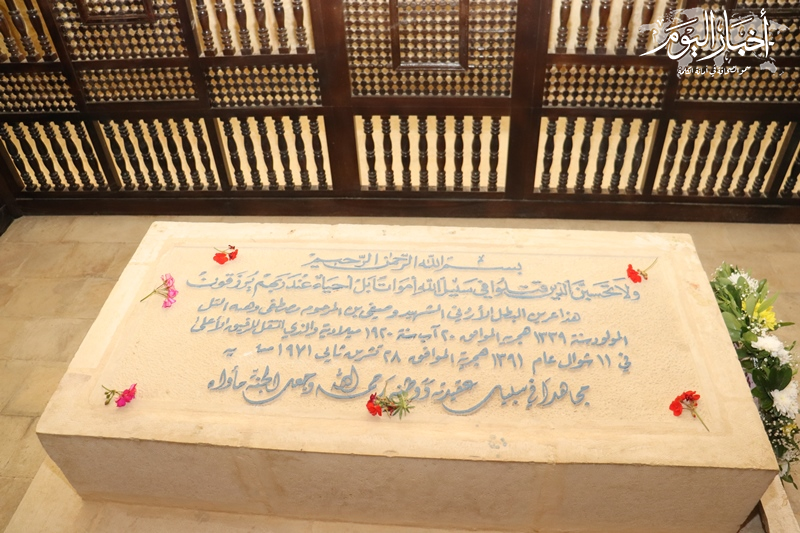 أخبار اليوم
بسم الله الرحمن الرحيم
ولا تحسبن الذين قتلوا في سبيل الله أمواتا بل أحياء عند ربهم يرزقون
هذا عرين البطل الأردني الشهيد وصفي بن المرحوم مصطفى وهبه التل
المولود سنة ١٣٣٩ هجرية الموافق ٢٠ آب سنة ١٩٢٠ ميلادية والذي انتقل للرفيق الأعلى
في ١١ شوال عام ١٣٩١ هجرية الموافق ٢٨ تشرين ثاني ١٩٧١ م
مجاهدا في سبيل عقيدته ووطنه رحمه الله وجعل الجنة مأواه